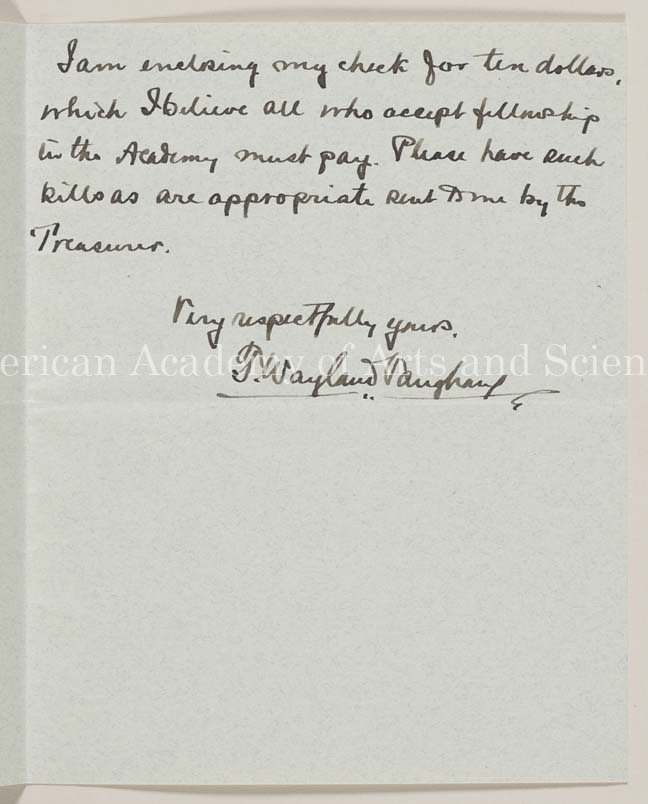 I am enclosing my check for ten dollars,
which I believe all who accept fellowship
in the Academy must pay. Please have such
bills as are appropriate sent to me by the
Treasurer.
Very respectfully yours,
American Academy of Arts and Scien
T. Wayland Vaughan